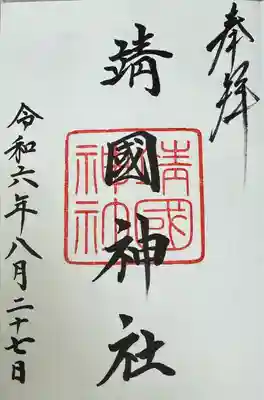 奉拝
靖國神社
令和六年八月二十七日
靖國神社